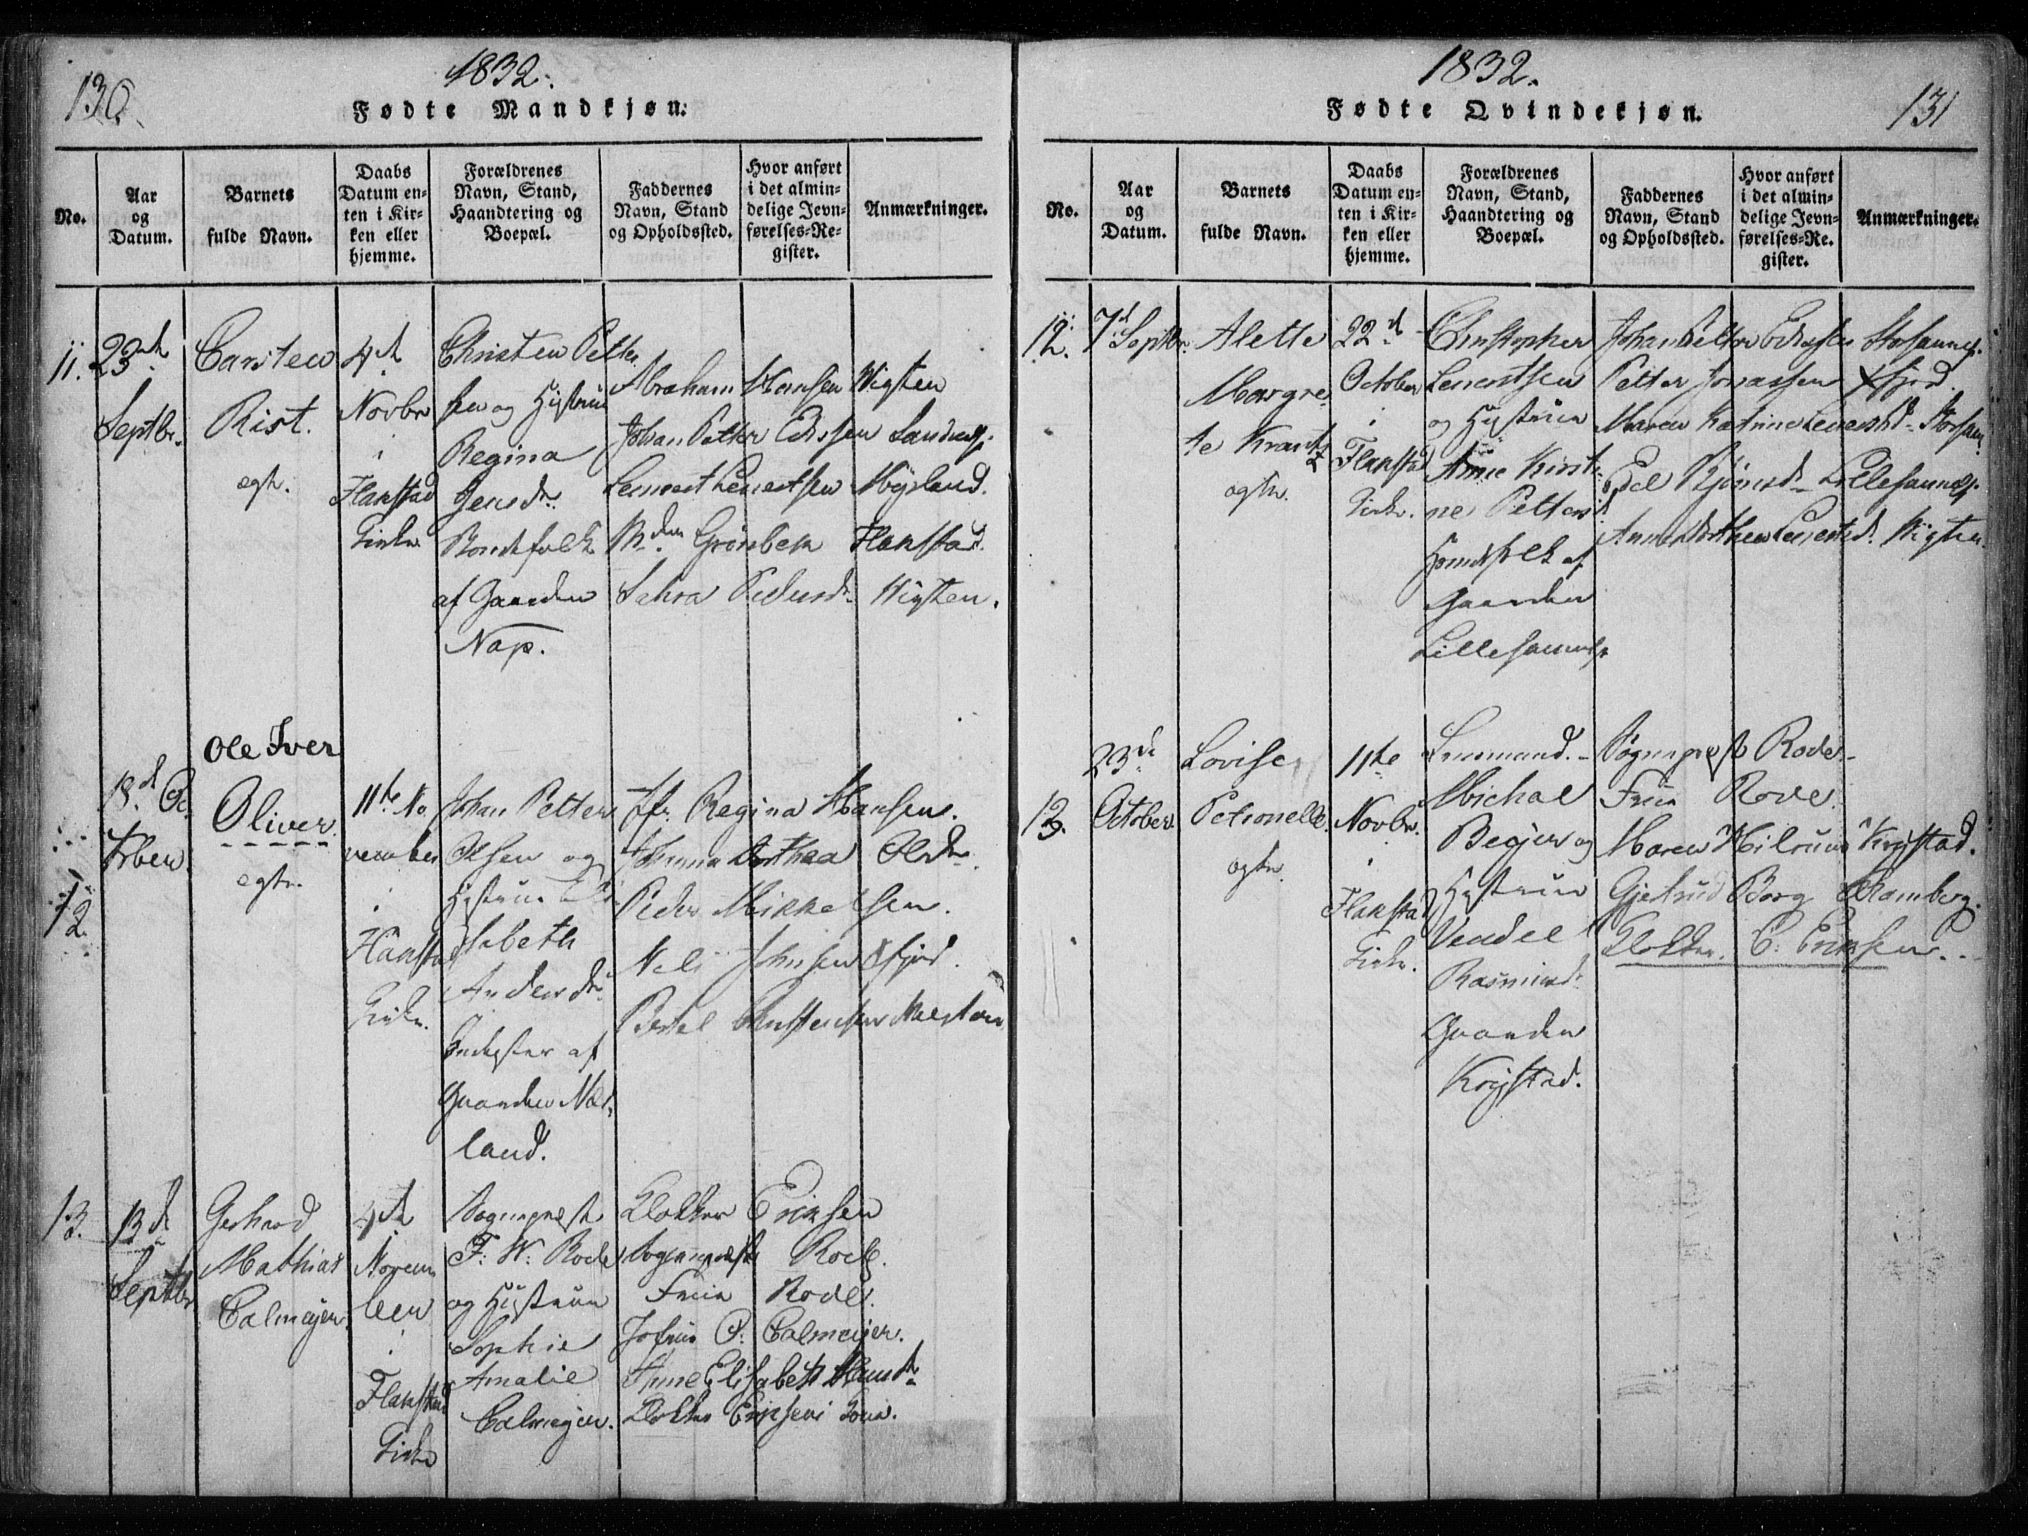 130.
1832.
Fødte Mandkjøn.
No.
Aar
og
Datum.
Barnets
fulde Navn.
Daabs
Datum en-
ten i Kir-
ken eller
hjemme.
Forældrenes
Navn, Stand,
Haandtering og
Boepæl.
Faddernes
Navn, Stand
og Opholdssted.
Hvor anført
i det almin-
delige Jevn-
førelses-Re-
gister.
Anmærkninger.
11.
23de
Septbr.
Carsten
Rist.
ægte.
4de
Novbr
i
Flakstad
Kirke
Christen Petter
sen og Hustrue
Regina
Jensdr.
Bondefolk
af Gaarden
Nap.
Abraham Hansen Vigten
Johan Petter
Lennert Lennertsen Myrland.
Mdm Grønbek Flakstad.
Vigten.
12.
18de Oc
tober
Ole Iver
Oliver
ægte.
11te No
vember
i
Flakstad
Kirke.
Johan Petter
Olsen og
Hustrue Eli
sabeth
Andersdr.
af
Gaarden
land.
Jfr. Regina Hansen.
Johanna Dorthea
Peder Mikkelsen.
Johnsen
13.
13de
Septbr
Gerhard
Mathias
Calmejer.
4de
Novem
ber
i
Flakstad
Kirke
Sognepræst
F. W. Rode
og Hustrue
Sophie
Amalie
Calmejer.
Klokker Eriksen
Sognepræst Rode.
Frue Rode.
Jofrue C. Calmeijer.
Anne Elisabeth Hansdr.
Klokker Eriksens Kone.
1832.
131
Fødte Qvindekjøn.
No.
Aar
og
Datum.
Barnets
fulde Navn.
Daabs
Datum en-
ten i Kir-
ken eller
hjemme.
Forældrenes
Navn, Stand,
Haandtering og
Boepæl.
Faddernes
Navn, Stand
og Opholdssted.
Hvor anført
i det almin-
delige Jevn-
førelses-Re-
gister.
Anmærkninger.
12.
7de Septbr.
Alette
Margre
te Krantz
ægte.
22de
October
i
Flakstad
Kirke.
Christopher
Lennertsen
og Hustrue
Anne Kirsti
ne Pettersd.
af
Gaarden
Lillesannes.
Johan Petter
Petter Jonassen
Maren Katrine Lennertsd.
Edel Lillesannes.
Anne Dorthea Lennertsd. Vigten.
13.
23de
October
Lovise
Petronelle.
ægte.
11te
Novbr.
i
Flakstad
Kirke.
Lensmand
Michal
Bejer og
Hustrue
Vendel
Rasmusd.
Gaarden
Krystad.
Sognepræst Rode
Frue Rode.
Maren Krystad.
Gjertrud Borg Ramberg.
Klokker C. Eriksen.